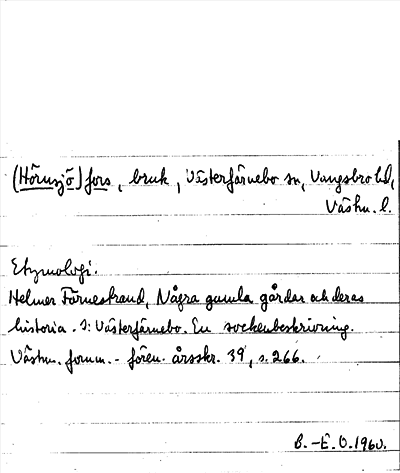 (Hörnsjö)fors, bruk, Västerfärnebo sn, Vangsbro hd,
Västm. l.
Etymologi.
Helmer Färnestrand, Några gamla gårdar och deras
historia. I: Västerfärnebo. En sockenbeskrivning.
Västm. fornm.-fören. årsskr. 39, s. 266.
B.-E. O. 1960.